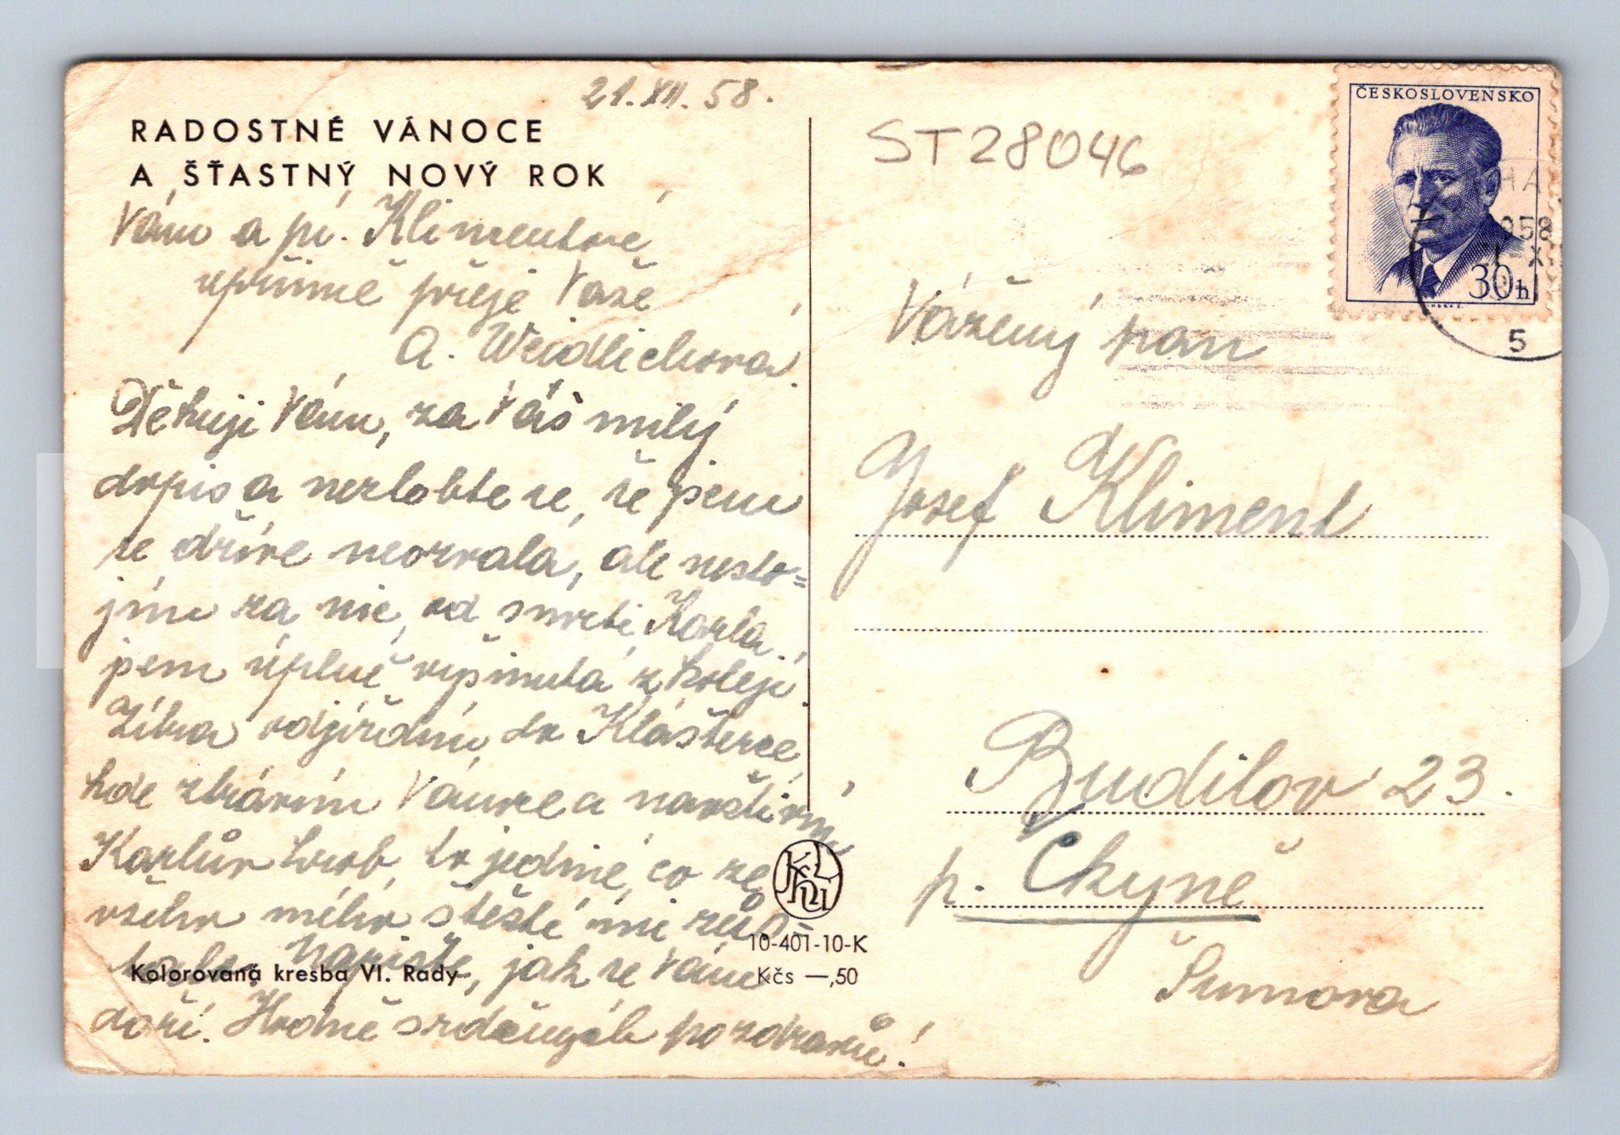 21.XII.58.
RADOSTNÉ VÁNOCE
A ŠŤASTNÝ NOVÝ ROK
Vám a pí. Klimentové
upřímně přeje Vaše
A. Weidlichová.
Děkuji Vám, za Váš milý
dopis a nezlobte se, že jsem
se dříve neozvala, ale nesto=
jím za nic, od smrti Karla
jsem úplně vyšinutá z koleji.
Zítra odjíždím do Klášterce,
kde ztrávím Vánoce a navštívím
Karlův hrob, to jediné, co ze
všeho mého štěstí mi zůs-
talo. Napište, jak se Vám
daří. Hodně srdečných pozdravů!
Kolorovaná kresba Vl. Rady
10-401-10-K
Kčs —,50
ST28046
ČESKOSLOVENSKO
30h
HA
958
X
5
Vážený pan
Josef Kliment
Budilov 23.
p. Čkyně
Šumava